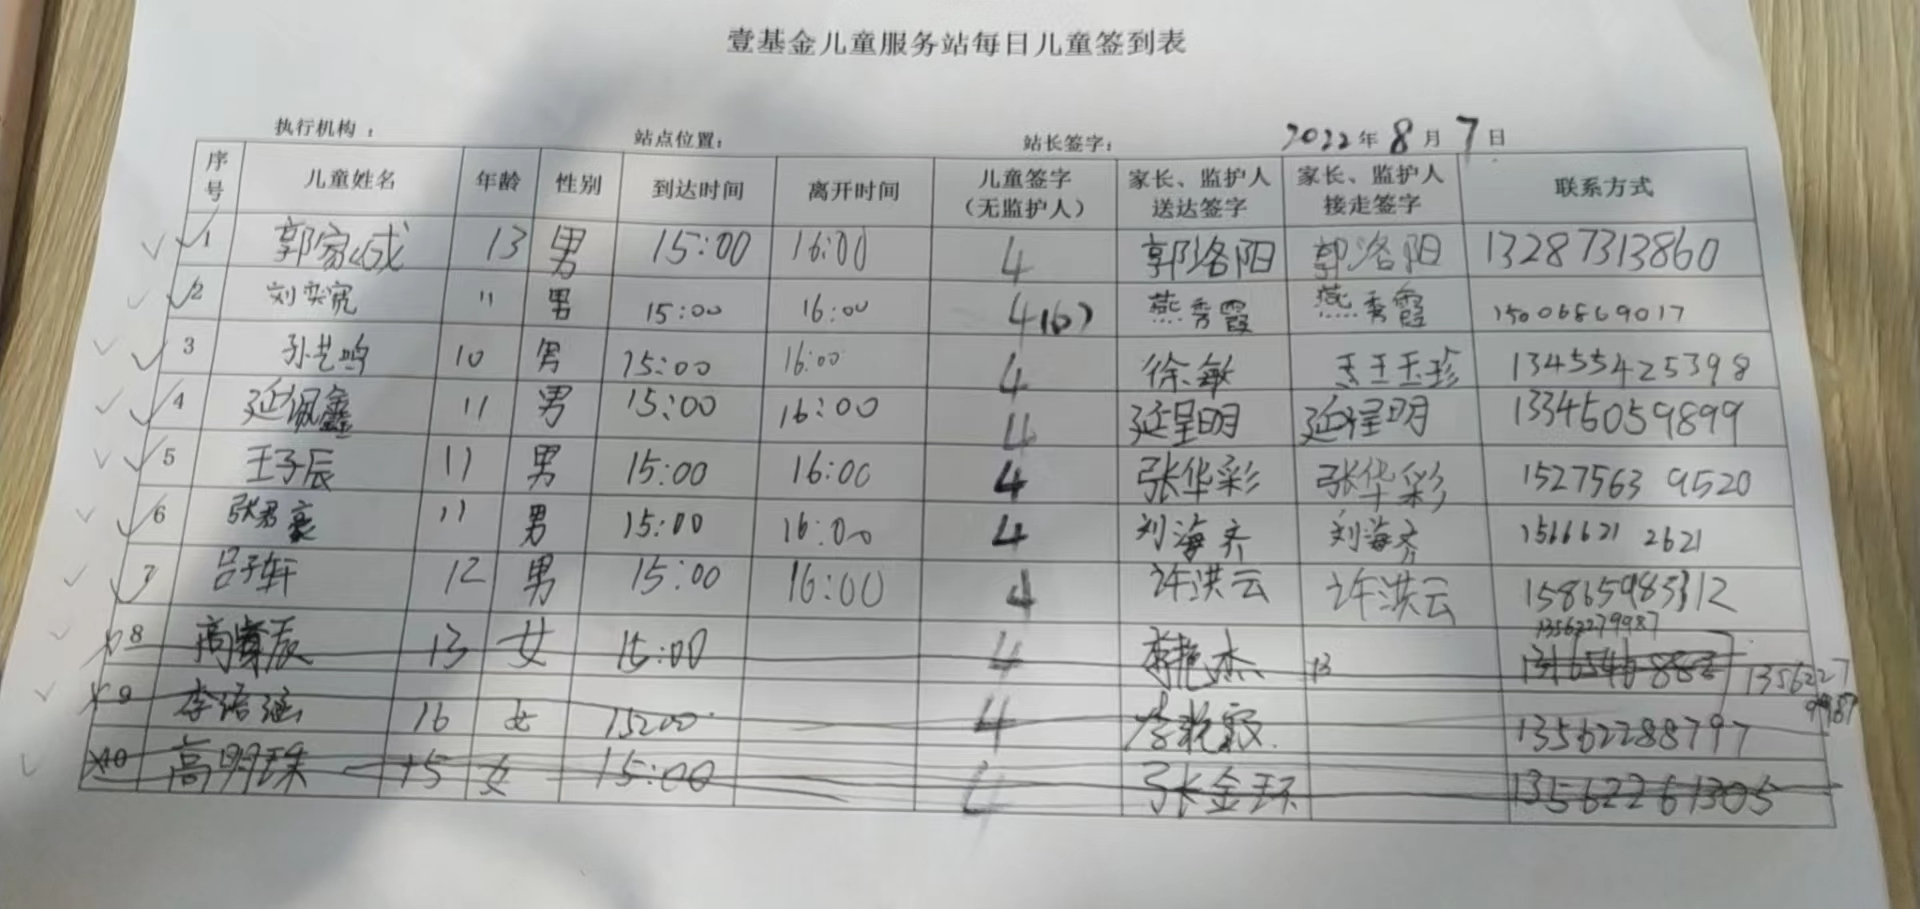 壹基金儿童服务站每日儿童签到表
执行机构： 站点位置： 站长签字： 2022年8月7日
序号 儿童姓名 年龄 性别 到达时间 离开时间 儿童签字（无监护人） 家长、监护人送达签字 家长、监护人接走签字 联系方式
1 郭家成 13 男 15:00 16:00 4 郭洛阳 郭洛阳 13287313860
2 刘奕宽 11 男 15:00 16:00 4(6) 燕秀霞 燕秀霞 15006869017
3 孙艺鸣 10 男 15:00 16:00 4 徐敏 王玉珍 13455425398
4 延佩鑫 11 男 15:00 16:00 4 延呈明 延程明 13345059899
5 王子辰 11 男 15:00 16:00 4 张华彩 张华彩 15275639520
6 张君豪 11 男 15:00 16:00 4 刘海齐 刘海齐 15666212621
7 吕子轩 12 男 15:00 16:00 4 许洪云 许洪云 15865983312
13562279987
8 高 辰 13 女 15:00 4 李艳杰 13 1356227
9987
9 李语涵 16 女 15:00 4 13562288797
10 高明珠 15 女 15:00 4 张金环 13562261305